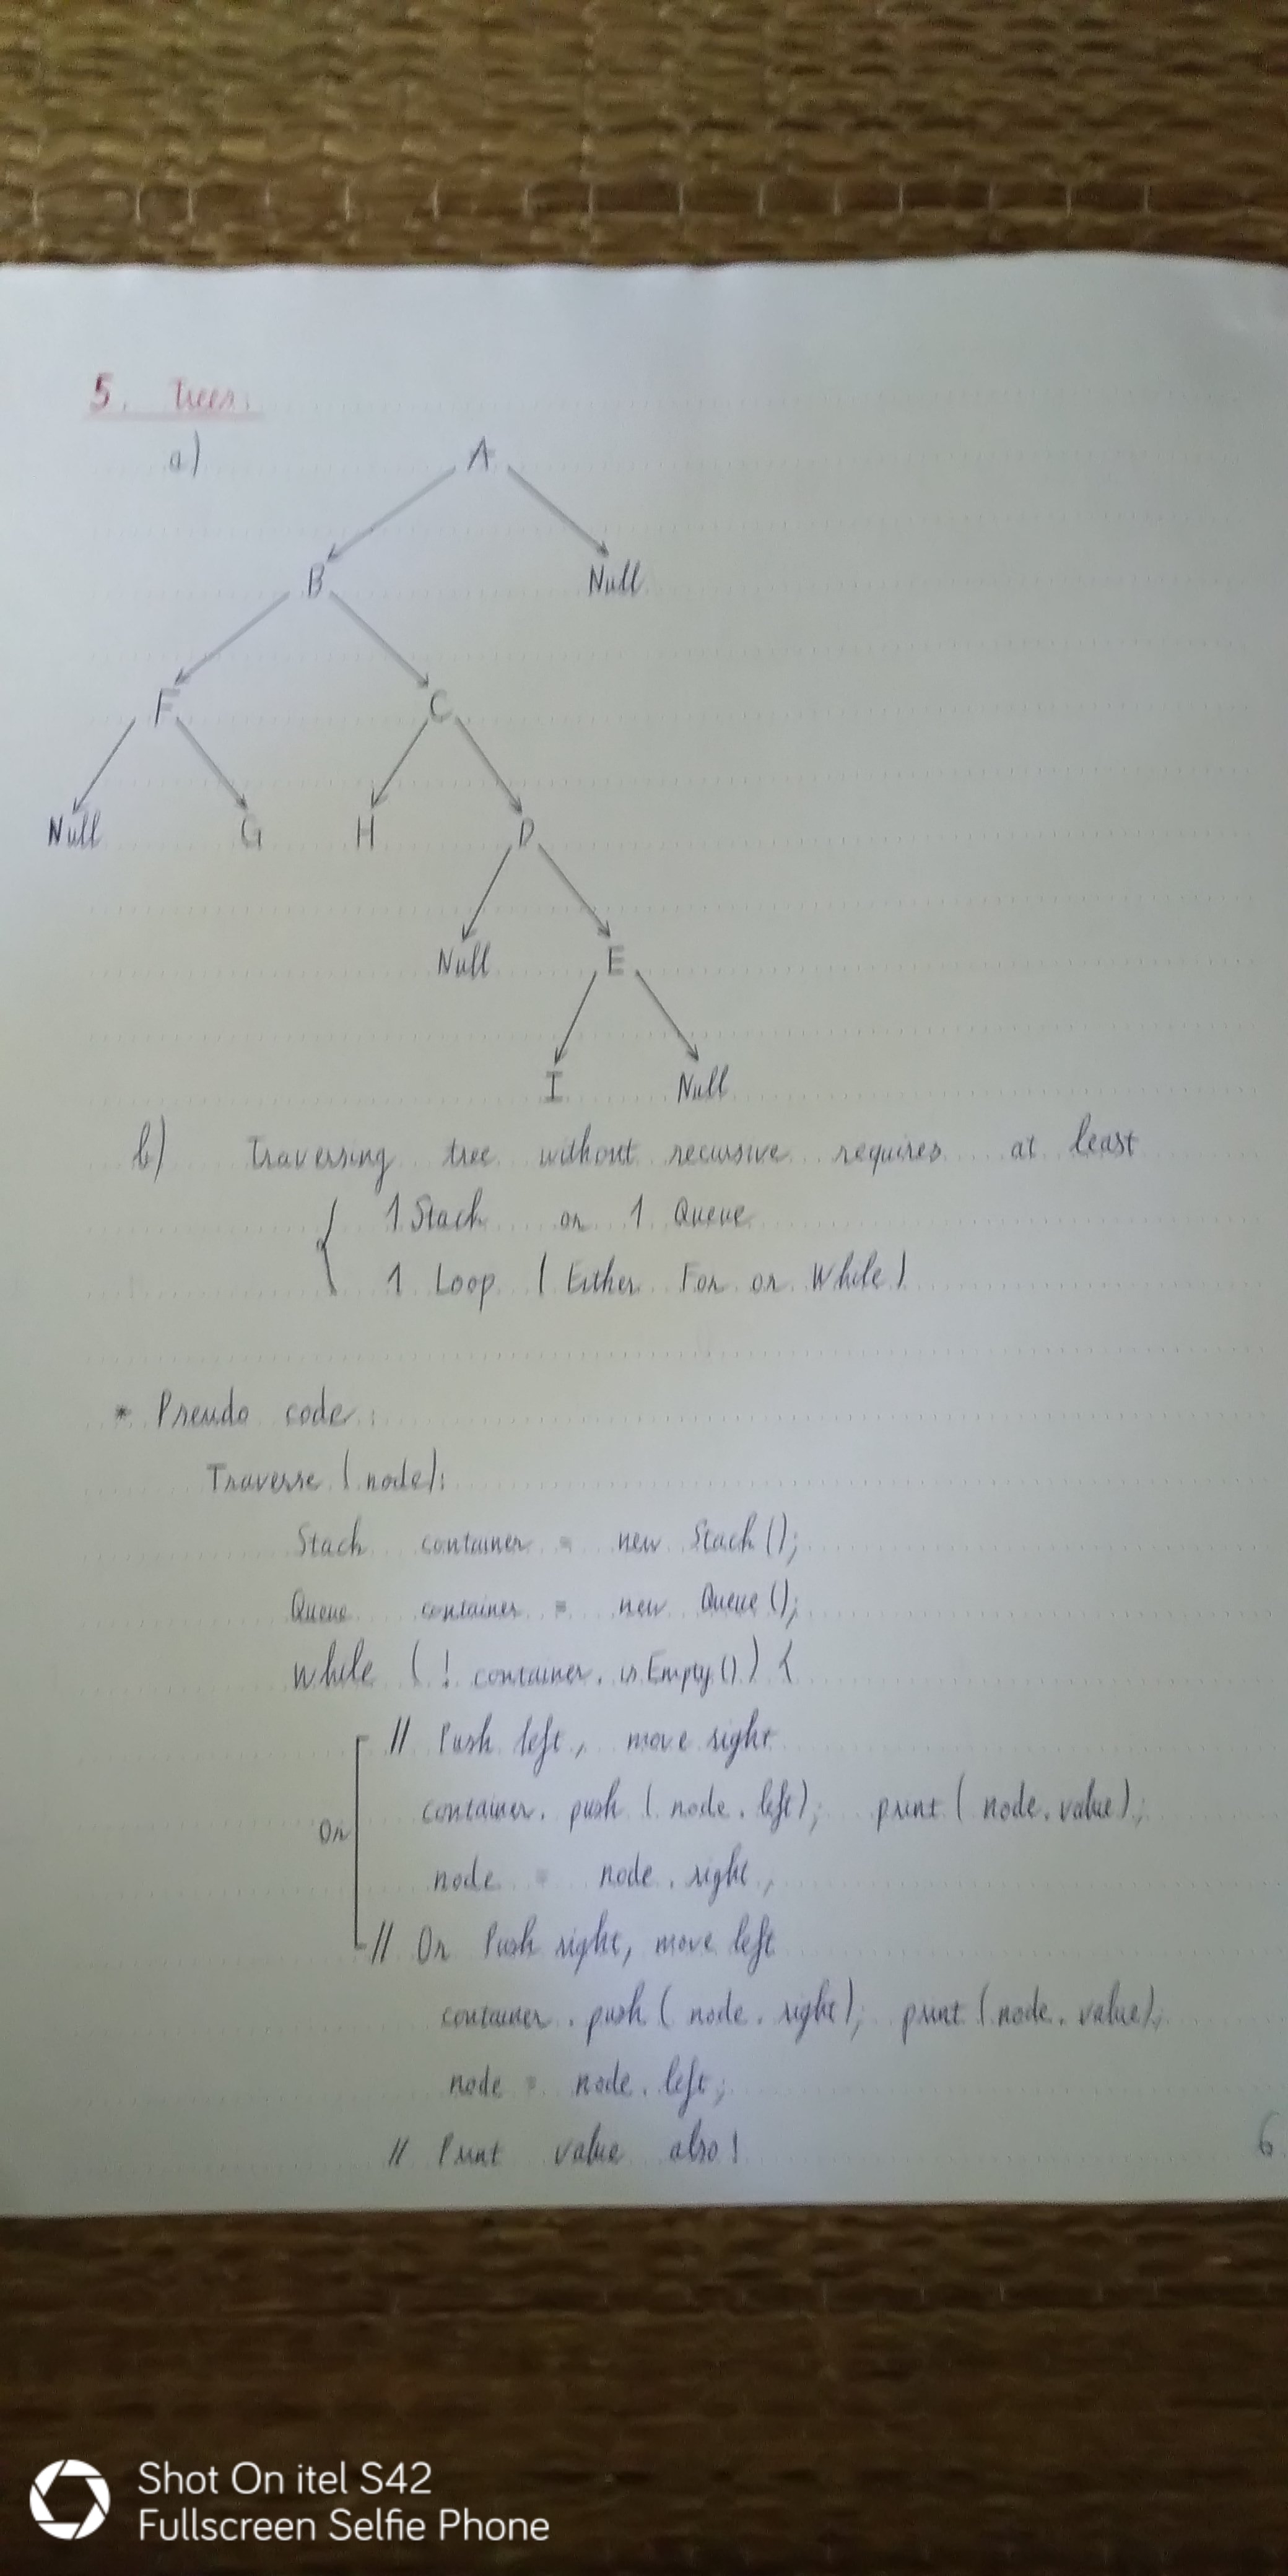 5. Trees.
a)
A
B Null
F C
Null G H D
Null E
I Null
b) Traversing tree without recursive requires at least
1 Stack or 1 Queue
1 Loop ( Either For or While )
* Pseudo code :
Traverse ( node ):
Stack container = new Stack ();
Queue container = new Queue ();
While ( ! container. isEmpty () ) {
// Push left, move right
container. push ( node. left); print ( node. value);
node = node. right;
or
// Or Push right, move left
container. push ( node. right); print ( node. value);
node = node. left;
// Print value also !
6
Shot On itel S42
Fullscreen Selfie Phone